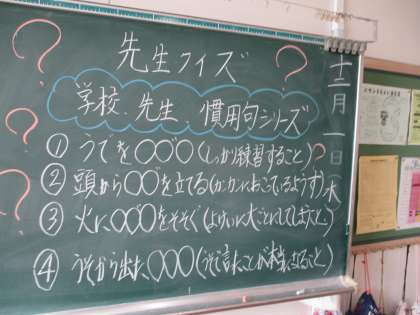 先生クイズ
学校、先生、慣用句シリーズ
① うでを○○゛○(しっかり練習すること)
② 頭から○○゛を立てる(カンカンにおこっているようす)
③ 火に、○○゛○をそそぐ(よけいに大ごとにしてしまうこと。)
④ うそから出た、○○○(うそで言ったことが本当になること)
十二月一日(水)